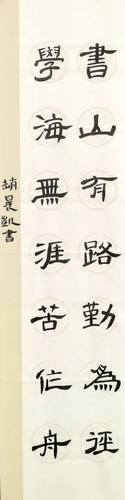 書山有路勤為逕
學海無涯苦作舟
趙晨凱書